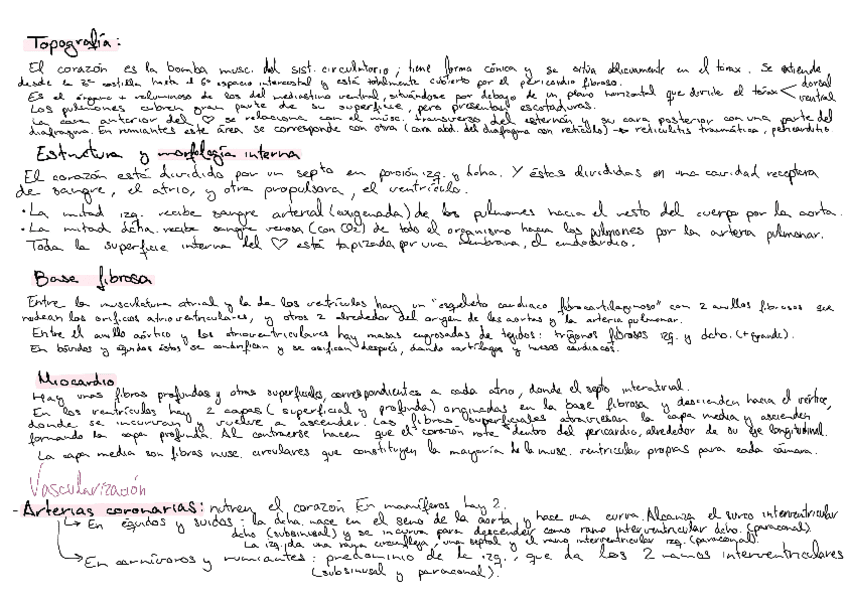 Topografía:
El corazón es la bomba musc. del sist. circulatorio; tiene forma cónica y se sitúa oblicuamente en el tórax. Se extiende
desde la 2ª costilla hasta el 6º espacio intercostal y está totalmente cubierto por el pericardio fibroso.
Es el órgano + voluminoso de los del mediastino ventral, situándose por debajo de un plano horizontal que divide el tórax < dorsal ventral
Los pulmones cubren gran parte de su superficie, pero presentan escotaduras.
La cara anterior del ♡ se relaciona con el músc. transverso del esternón y su cara posterior con una parte del
diafragma. En rumiantes este área se corresponde con otra (cara abd. del diafragma con retículo) → reticulitis traumática, pericarditis
Estructura y morfología interna
El corazón está dividido por un septo en porción izq. y dcha. Y éstas divididas en una cavidad receptora
de sangre, el atrio, y otra propulsora, el ventrículo.
· La mitad izq. recibe sangre arterial (oxigenada) de los pulmones hacia el resto del cuerpo por la aorta.
· La mitad dcha. recibe sangre venosa (con CO2) de todo el organismo hacia los pulmones por la arteria pulmonar.
Toda la superficie interna del ♡ está tapizada por una membrana, el endocardio.
Base fibrosa
Entre la musculatura atrial y la de los ventrículos hay un "esqueleto cardiaco fibrocartilaginoso" con 2 anillos fibrosos que
rodean los orificios atrioventriculares, y otros 2 alrededor del origen de las aortas y la arteria pulmonar.
Entre el anillo aórtico y los atrioventriculares hay masas engrosadas de tejidos: trígonos fibrosos izq. y dcho. (+ grande).
En bóvidos y équidos éstos se condrifican y se osifican después, dando cartílagos y huesos cardiacos.
Miocardio
Hay unas fibras profundas y otras superficiales, correspondientes a cada atrio, donde el septo interatrial.
En los ventrículos hay 2 capas (superficial y profunda) originadas en la base fibrosa y descienden hacia el vértice,
donde se incurvan y vuelve a ascender. Las fibras superficiales atraviesan la capa media y ascienden
formando la capa profunda. Al contraerse hacen que el corazón rote dentro del pericardio, alrededor de su eje longitudinal.
La capa media son fibras musc. circulares que constituyen la mayoría de la musc. ventricular propias para cada cámara.
Vascularización
- Arterias coronarias: nutren el corazón. En mamíferos hay 2.
→ En équidos y suidos: la dcha. nace en el seno de la aorta y hace una curva. Alcanza el surco interventricular
dcho (subsinusal) y se incurva para descender como ramo interventricular dcho. (paraconal).
La izq. da una rama circunfleja, una septal y el ramo interventricular izq. (paraconal).
→ En carnívoros y rumiantes: predominio de la izq., que da los 2 ramos interventriculares
(subsinusal y paraconal).